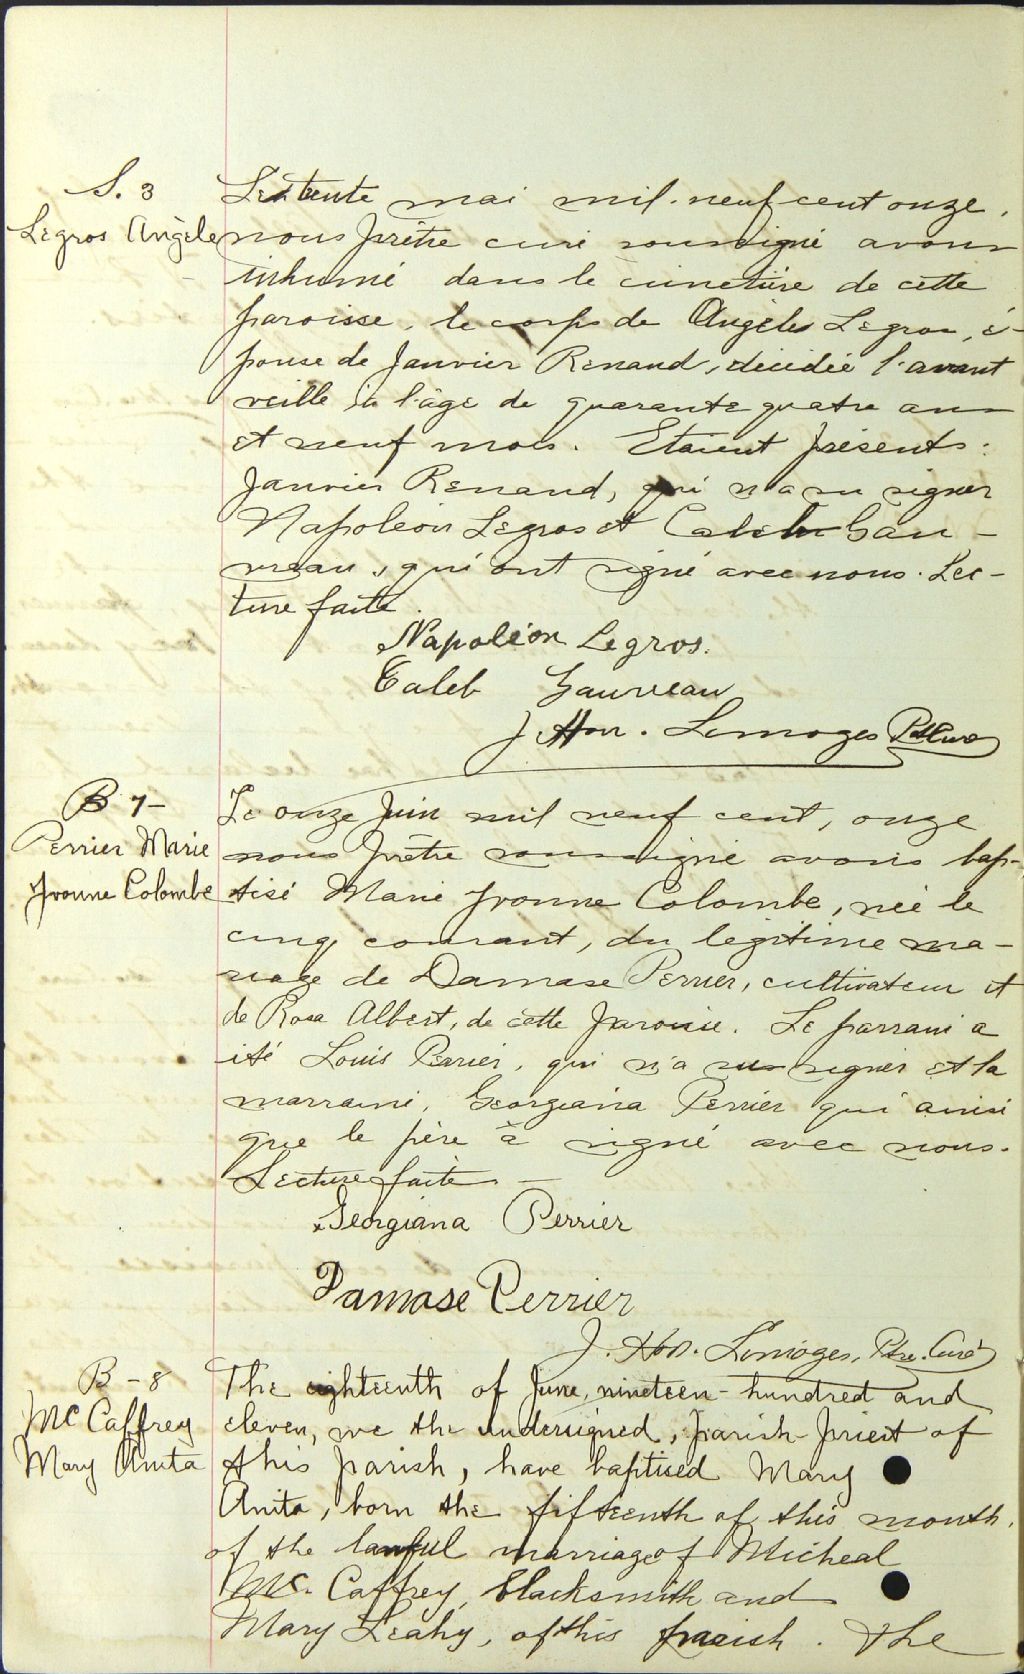 S. 3
Legros Angèle
Le trente mai mil neuf cent onze,
nous prêtre curé soussigné avons
inhumé dans le cimetière de cette
paroisse, le corps de Angèle Legros, é-
pouse de Janvier Renaud, décédée l'avant
veille à l'âge de quarante quatre ans
et neuf mois. Etaient présents:
Janvier Renaud, qui n'a su signer
Napoléon Legros et Caleb Gau-
vreau, qui ont signé avec nous. Lec-
ture faite.
Napoléon Legros.
Caleb Gauvreau
J. Hon. Limoges Ptre Curé
B 7-
Perrier Marie
Yvonne Colombe
Le onze Juin mil neuf cent, onze
nous prêtre soussigné avons bap-
tisé Marie Yvonne Colombe, née le
cinq courant, du légitime ma-
riage de Damase Perrier, cultivateur et
de Rosa Albert, de cette paroisse. Le parrain a
été Louis Perrier, qui n'a su signer et la
marraine, Georgiana Perrier qui ainsi
que le père a signé avec nous.
Lecture faite -
Georgiana Perrier
Damase Perrier
J. Hon. Limoges, Ptre. Curé
B - 8
Mc Caffrey
Mary Anita
The eighteenth of June, nineteen-hundred and
eleven, we the undersigned, parish-priest of
this parish, have baptised Mary
Anita, born the fifteenth of this month.
of the lawful marriage of Micheal
Mc. Caffrey, blacksmith and
Mary Leahy, of this parish. The